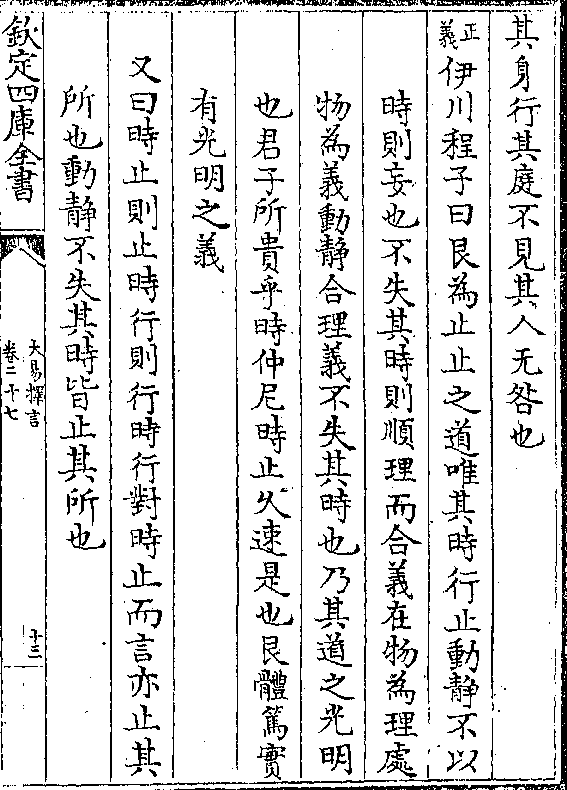 其身行其庭不見其人无咎也
正義伊川程子曰艮為止止之道唯其時行止動靜不以
時則妄也不失其時則順理而合義在物為理處
物為義動靜合理義不失其時也乃其道之光明
也君子所貴乎時仲尼時止久速是也艮體篤實
有光明之義
又曰時止則止時行則行時行對時止而言亦止其
所也動靜不失其時皆止其所也
欽定四庫全書
大易擇言
卷二十七
十三